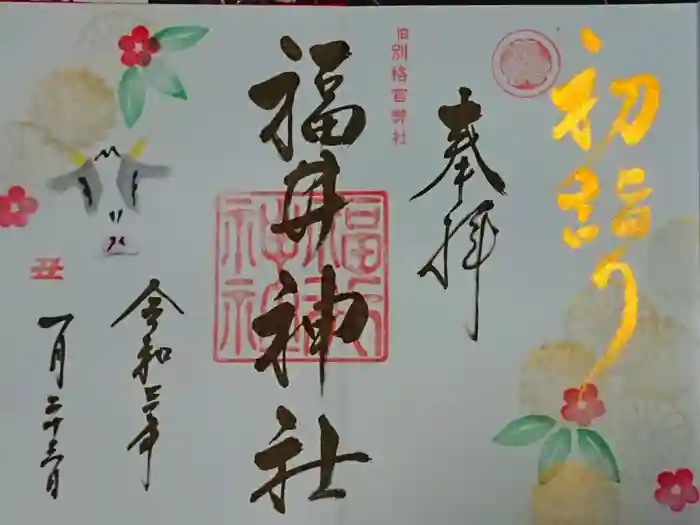 初詣り
奉拝
旧別格官幣社
福井神社
令和三年
一月二十三日
丑